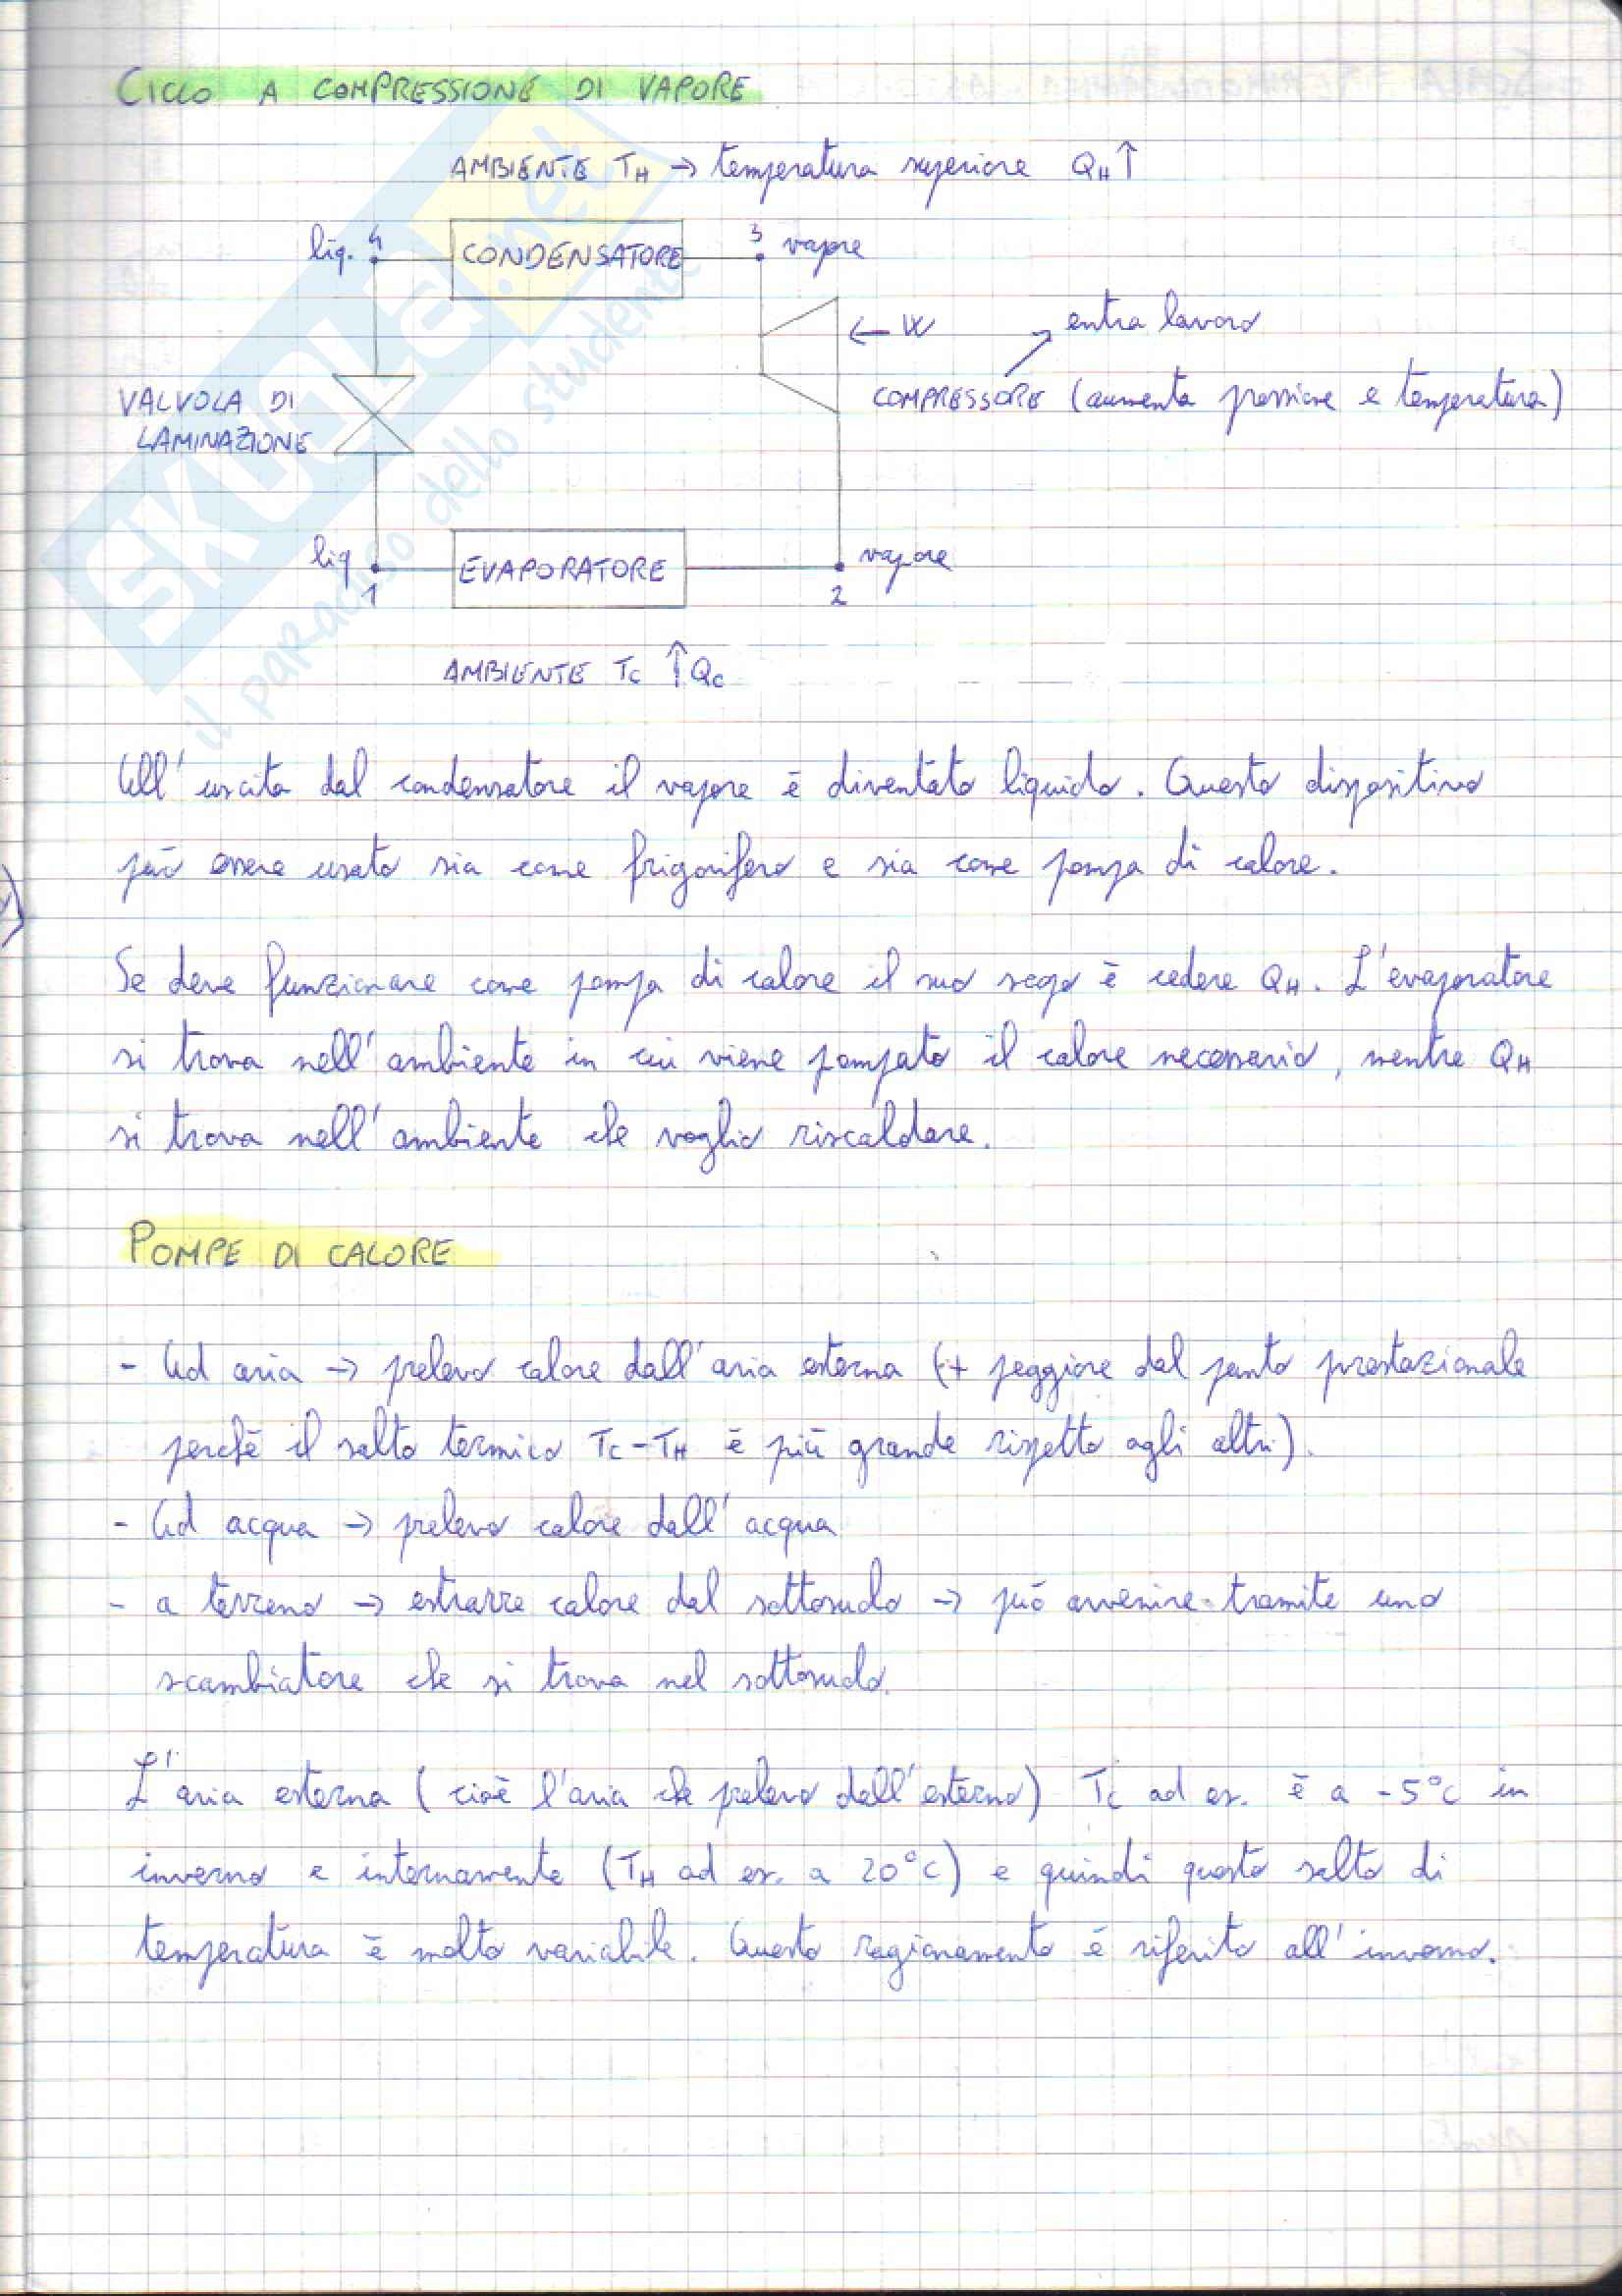 CICLO A COMPRESSIONE DI VAPORE
AMBIENTE TH → temperatura superiore QH ↑
liq. 4 CONDENSATORE 3 vapore
← W entra lavoro
VALVOLA DI LAMINAZIONE
COMPRESSORE (aumenta pressione e temperatura)
liq 1 EVAPORATORE 2 vapore
AMBIENTE Tc ↑ Qc
All'uscita dal condensatore il vapore è diventato liquido. Questo dispositivo
può essere usato sia come frigorifero e sia come pompa di calore.
Se deve funzionare come pompa di calore il suo scopo è cedere QH. L'evaporatore
si trova nell'ambiente in cui viene pompato il calore necessario, mentre QH
si trova nell'ambiente che voglio riscaldare.
POMPE DI CALORE
- Ad aria → prelevo calore dall'aria esterna (+ peggiore dal punto prestazionale
perchè il salto termico Tc-TH è più grande rispetto agli altri).
- Ad acqua → prelevo calore dall'acqua
- a terreno → estrarre calore dal sottosuolo → può avvenire tramite uno
scambiatore che si trova nel sottosuolo.
L'aria esterna (cioè l'aria che prelevo dall'esterno) Tc ad es. è a -5°C in
inverno e internamente (TH ad es. a 20°C) e quindi questo salto di
temperatura è molto variabile. Questo ragionamento è riferito all'inverno.
SKUOLA.net
il paradiso dello studente